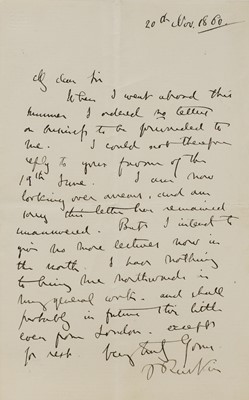 20th Nov. 1860
My dear Sir
When I went abroad this
summer I ordered no letters
on business to be forwarded to
me. I could not therefore
reply to your favour of the
19th June. I am now
looking over arrears, and am
sorry this letter has remained
unanswered. But I intend to
give no more lectures now in
the north. I have nothing
to bring me northwards in
my general work. and shall
probably in future stir little
even from London. except
for rest. Very truly Yours
J Ruskin